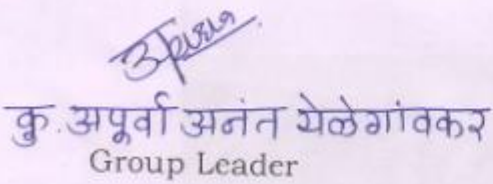 कु. अपूर्वा अनंत येळेगांवकर
Group Leader